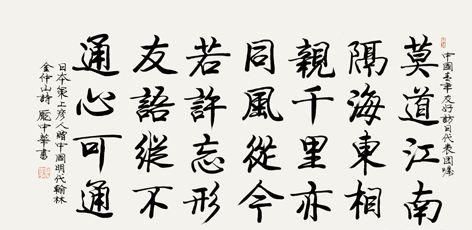 中國青年友好訪日代表团
莫道江南
隔海東相
親千里亦
同風從今
若許忘形
友語縱不
通心可通
日本策上彦人贈中國明代翰林
金仲山詩 龐中華書